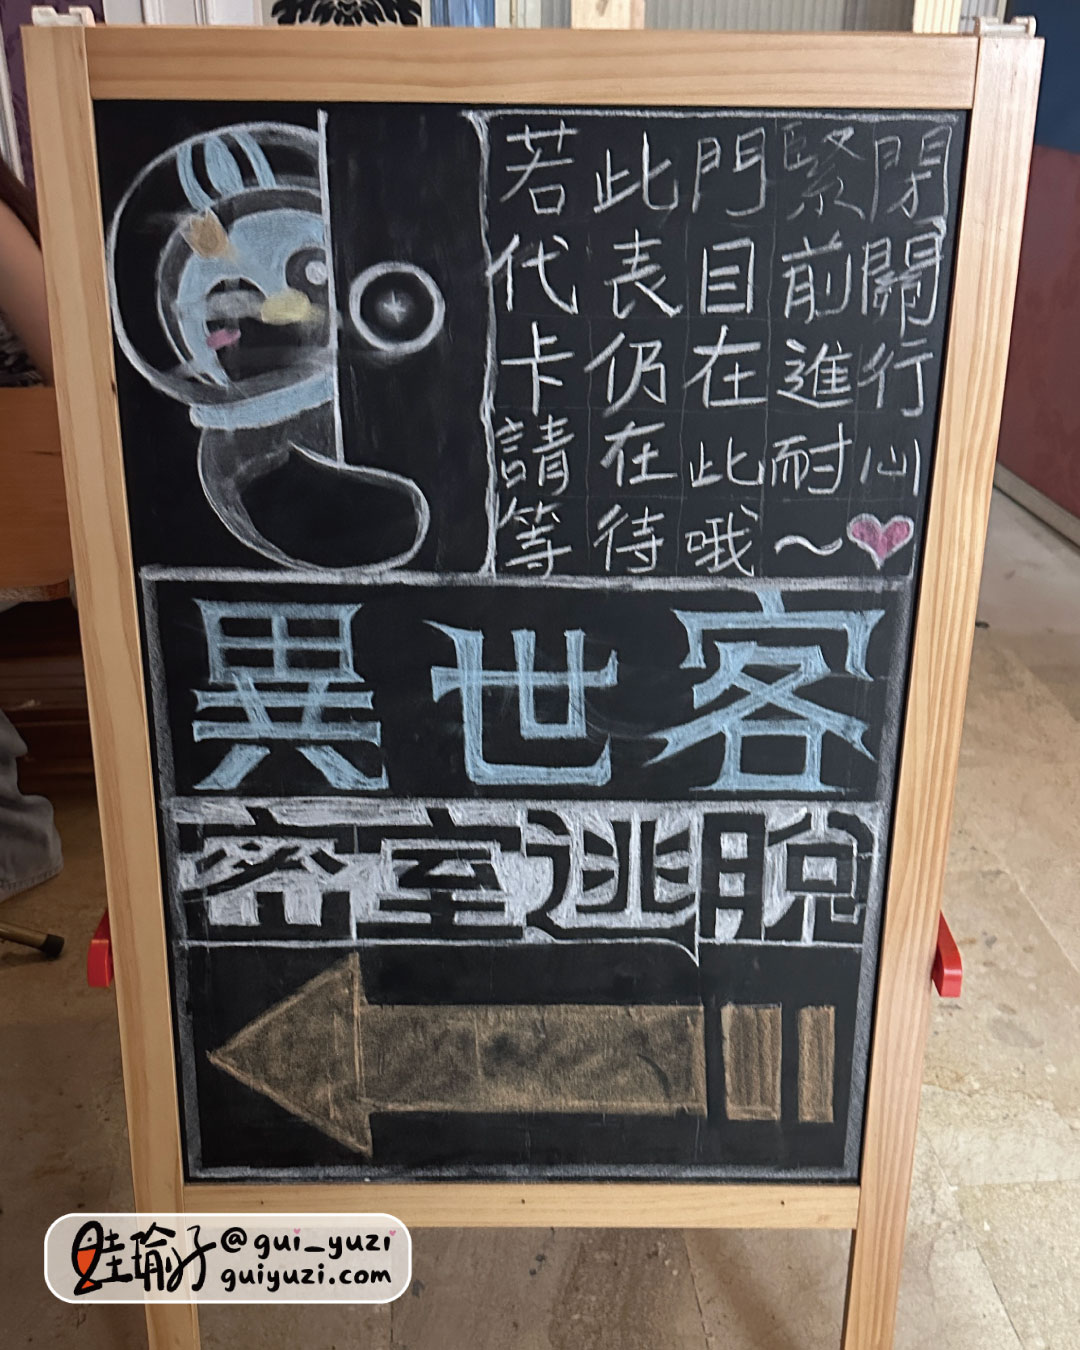 若此門緊閉
代表目前關
卡仍在進行
請在此耐心
等待哦～
異世客
密室逃脫
眭瑜子 @gui_yuzi
guiyuzi.com